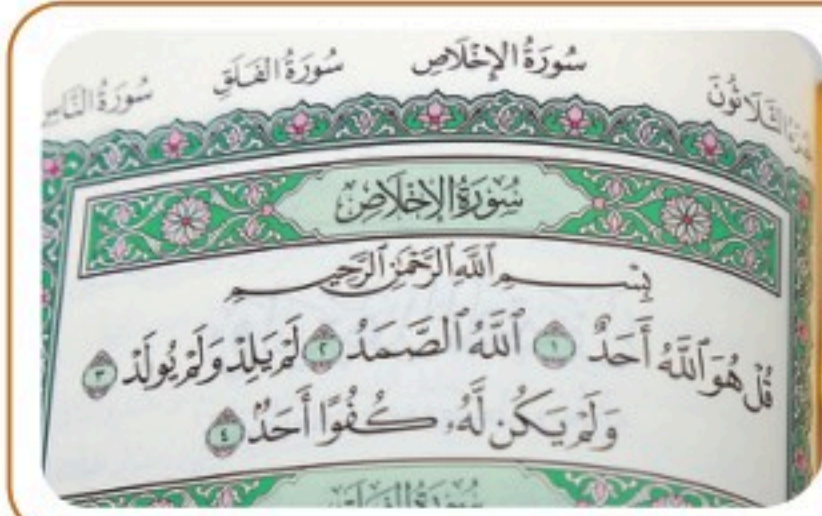 سُورَةُ الإِخْلَاصِ سُورَةُ الفَلَقِ سُورَةُ النَّاسِ
الثَّلَاثُونَ
سُورَةُ الإِخْلَاصِ
بِسْمِ ٱللَّهِ ٱلرَّحْمَٰنِ ٱلرَّحِيمِ
قُلْ هُوَ ٱللَّهُ أَحَدٌ ١ ٱللَّهُ ٱلصَّمَدُ ٢ لَمْ يَلِدْ وَلَمْ يُولَدْ ٣
وَلَمْ يَكُن لَّهُۥ كُفُوًا أَحَدٌۢ ٤